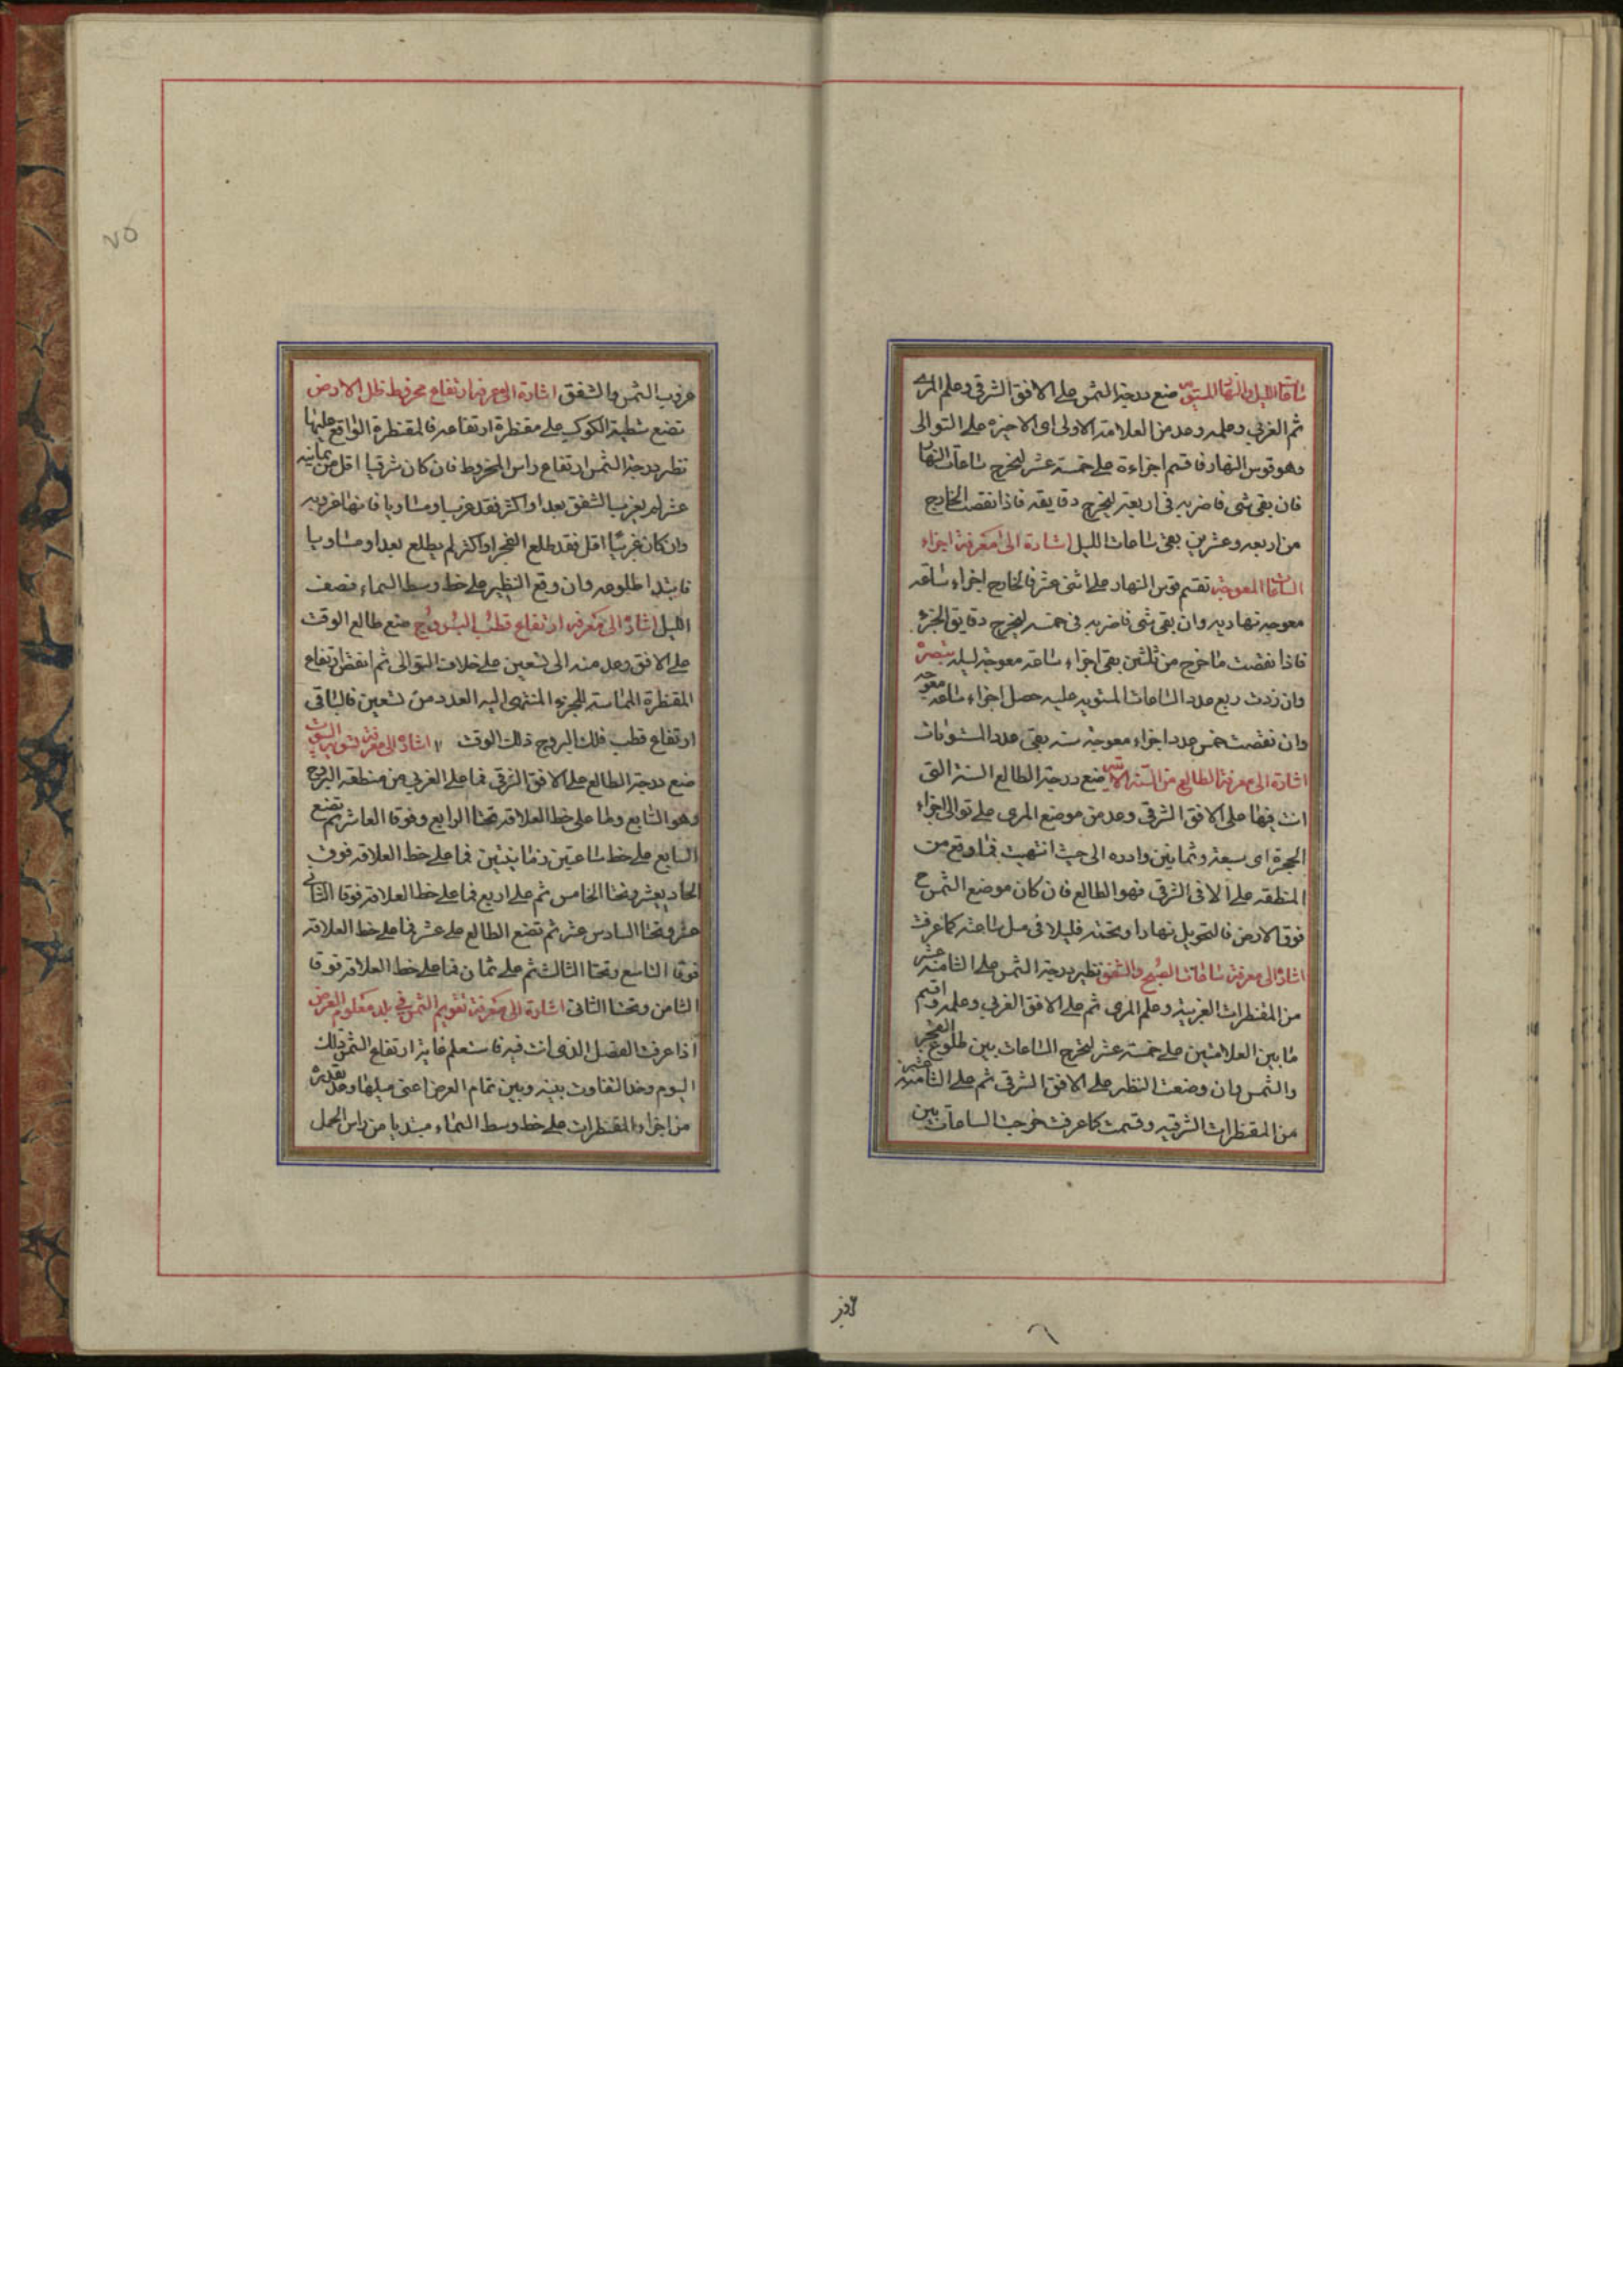 ساعات الليل والنهار المستوية ضع درجة الشمس على الافق الشرقى وعلم المرى
ثم الغربى وعلمه وعد من العلامة الاولى اى الاخيرة على التوالى
وهو قوس النهار فاقسم اجزاءه على خمسة عشر ليخرج ساعات النهار
فان بقى شى فاضربه فى اربعة ليخرج دقايقه فاذا نقصت الخارج
من اربعه وعشرين بقى ساعات الليل اشارة الى معرفة اجزاء
الساعات المعوجة تقسم قوس النهار على اثنى عشر فالخارج اجزاء ساعة
معوجة نهاريه وان بقى شى فاضربه فى خمسة ليخرج دقايق الجزء
فاذا نقصت ما خرج من ثلثين بقى اجزاء ساعة معوجة ليليه تبصرة
وان زدت ربع عدد الساعات المستويه عليه حصل اجزاء ساعة معوجه
وان نقصت خمس عدد اجزاء معوجة منه بقى عدد المستويات
اشارة الى معرفة الطالع من السنة الاتيه ضع درجة الطالع السنة التى
انت فيها على الافق الشرقى وعد من موضع المرى على توالى اجزاء
الحجرة اى سبعة وثمانين وادره الى حيث انتهيت فما وقع من
المنطقه على الافق الشرقى فهو الطالع فان كان موضع الشمس ح
فوق الارض فالتحويل نهارا او تحته فليلا فى مثل ساعته كما عرفت
اشارة الى معرفة ساعات الصبح والشفق نظير درجة الشمس على الثامنة عشر
من المقنطرات الغربية وعلم المرى ثم على الافق الغربى وعلمه واقسم
ما بين العلامتين على خمسة عشر ليخرج الساعات بين طلوع الفجر
والشمس وان وضعت النظير على الافق الشرقى ثم على الثامنة عشر
من المقنطرات الشرقيه وقسمت كما عرفت خرجت الساعات بين
غروب الشمس والشفق اشارة الى معرفة ارتفاع مخروط ظل الارض
تضع شظية الكوكب على مقنطرة ارتفاعه فالمقنطرة الواقع عليها
نظير درجة الشمس ارتفاع راس المخروط فان كان شرقيا اقل من ثمانية
عشر لم يغرب الشفق بعد او اكثر فقد غرب او مساويا فانتهاء غروبه
وان كان غربيا اقل فقد طلع الفجر او اكثر لم يطلع بعد او مساويا
فابتداء طلوعه وان وقع النظير على خط وسط السماء فنصف
الليل اشارة الى معرفة ارتفاع قطب البروج ضع طالع الوقت
على الافق وعد منه الى تسعين على خلاف التوالى ثم انقص ارتفاع
المقنطرة المماسة للجزء المنتهى اليه العدد من تسعين فالباقى
ارتفاع قطب فلك البروج ذلك الوقت اشارة الى معرفة تسوية البيوت
ضع درجة الطالع على الافق الشرقى فما على الغربى من منطقه البروج
وهو السابع وما على خط العلاقة تحتا الرابع وفوقا العاشر ثم تضع
السابع على خط ساعتين زمانيتين فما على خط العلاقه فوق
الحاديعشر وتحتا الخامس ثم على اربع فما على خط العلاقة فوقا الثانى
عشر وتحتا السادس عشر ثم تضع الطالع على عشر فما على خط العلاقة
فوقا التاسع وتحتا الثالث ثم على ثمان فما على خط العلاقة فوقا
الثامن وتحتا الثانى اشارة الى معرفة تقويم الشمس فى بلد معلوم العرض
اذا عرفت الفصل الذى انت فيه فاستعلم غاية ارتفاع الشمس ذلك
اليوم وخذ التفاوت بينه وبين تمام العرض اعنى ميلها وعد بقدره
من اجزاء المقنطرات على خط وسط السماء مبتديا من راس الحمل